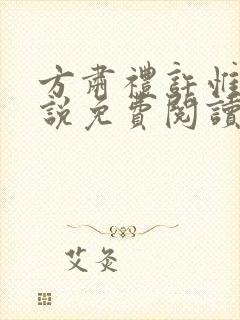 方肅禮許惟
說免費閱讀
艾灸